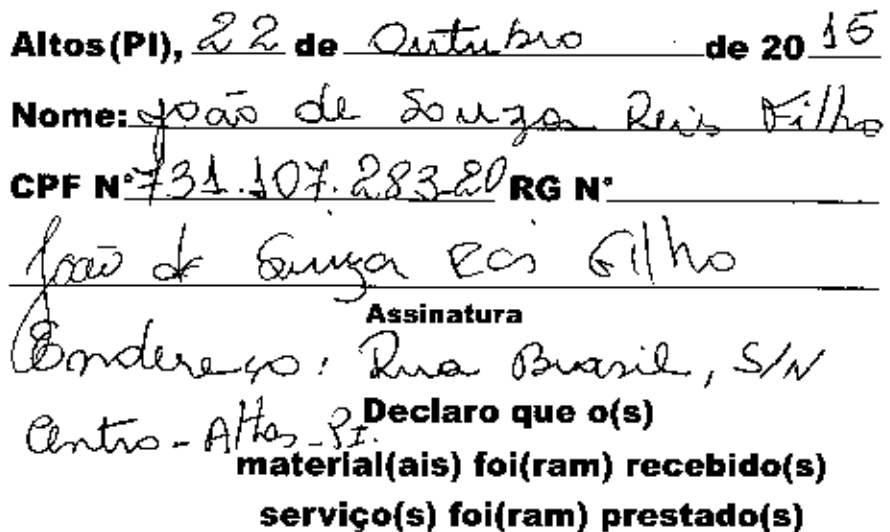 Altos (PI), 22 de Outubro de 20 15
Nome: João de Souza Reis Filho
CPF N° 731.107.283-20 RG N°
João de Souza Reis Filho
Assinatura
Endereço: Rua Brasil, S/N
Centro - Altos - PI.
Declaro que o(s)
material(ais) foi(ram) recebido(s)
serviço(s) foi(ram) prestado(s)